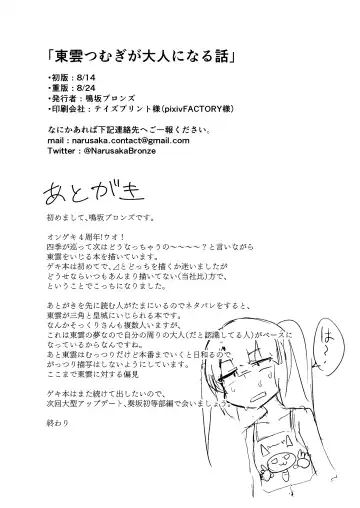 「東雲つむぎが大人になる話」
・初版：8/14
・重版：8/24
・発行者：鳴坂ブロンズ
・印刷会社：テイズプリント様（pixivFACTORY様）
なにかあれば下記連絡先へご一報ください。
mail : narusaka.contact@gmail.com
Twitter : @NarusakaBronze
あとがき
初めまして、鳴坂ブロンズです。
オンゲキ４周年！ウオ！
四季が巡って次はどうなっちゃうの～～～～？と言いながら
東雲をいじる本を描いています。
ゲキ本は初めてで、⊿とどっちを描くか迷いましたが
どうせならいつもあんまり描いてない（当社比）方で、
ということでこっちになりました。
あとがきを先に読む人がたまにいるのでネタバレをすると、
東雲が三角と皇城にいじられる本です。
なんかそっくりさんも複数人いますが、
これは東雲の夢なので自分の周りの大人（だと認識してる人）がベースに
なっているからなんですね。
あと東雲はむっつりだけど本番までいくと日和るので
がっつり描写はしないようにしています。
ここまで東雲に対する偏見
ゲキ本はまた続けて出したいので、
次回大型アップデート、奏坂初等部編で会いましょう。
終わり
は～